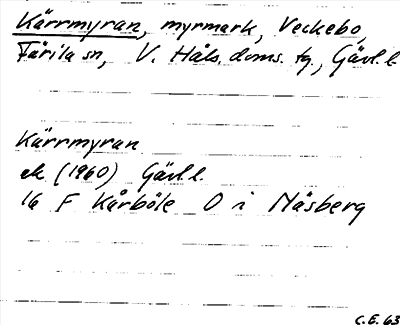 Kärrmyran, myrmark, Veckebo,
Färila sn, V. Häls. doms. tg., Gävl. l.
Kärrmyran
ek (1960) Gävl. l.
16 F Kårböle O i Näsberg
C.E. 63